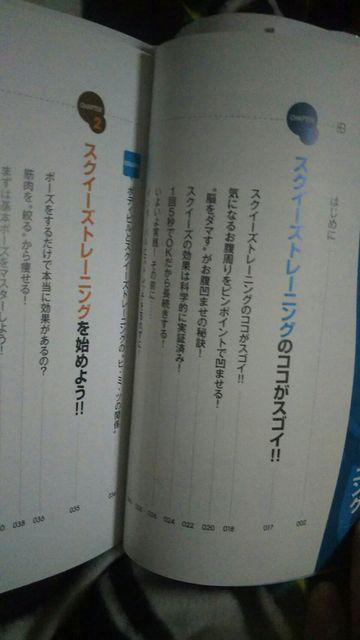 はじめに
002
CHAPTER
スクイーズトレーニングのココがスゴイ!!
017
スクイーズトレーニングのココがスゴイ!!
018
気になるお腹周りをピンポイントで凹ませる!
020
“脳をダマす”がお腹凹ませの秘訣!
022
スクイーズの効果は科学的に実証済み!
024
1回5秒でOKだから長続きする!
026
いよいよ実践!その前に……
ボディ・ビルとスクイーズトレーニングの、ヒ・ミ・ツの関係
034
CHAPTER
2
スクイーズトレーニングを始めよう!!
035
ポーズをするだけで本当に効果があるの?
036
筋肉を“絞る”から痩せる!
038
まずは基本ポーズをマスターしよう!